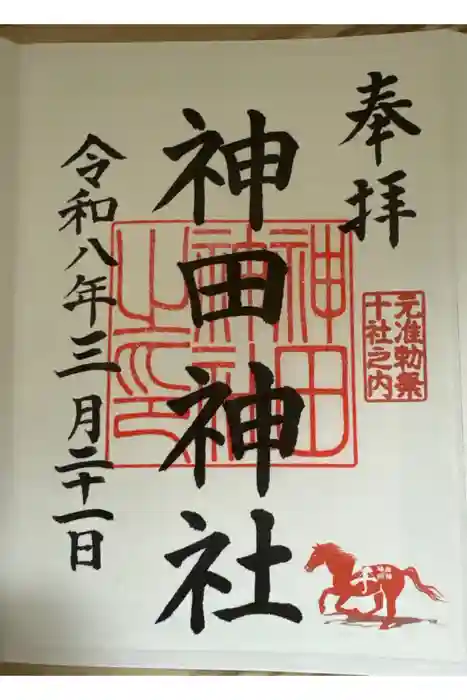 奉拝
元准勅祭
十社之内
神田神社
神田
神社
之印
令和八年三月二十一日